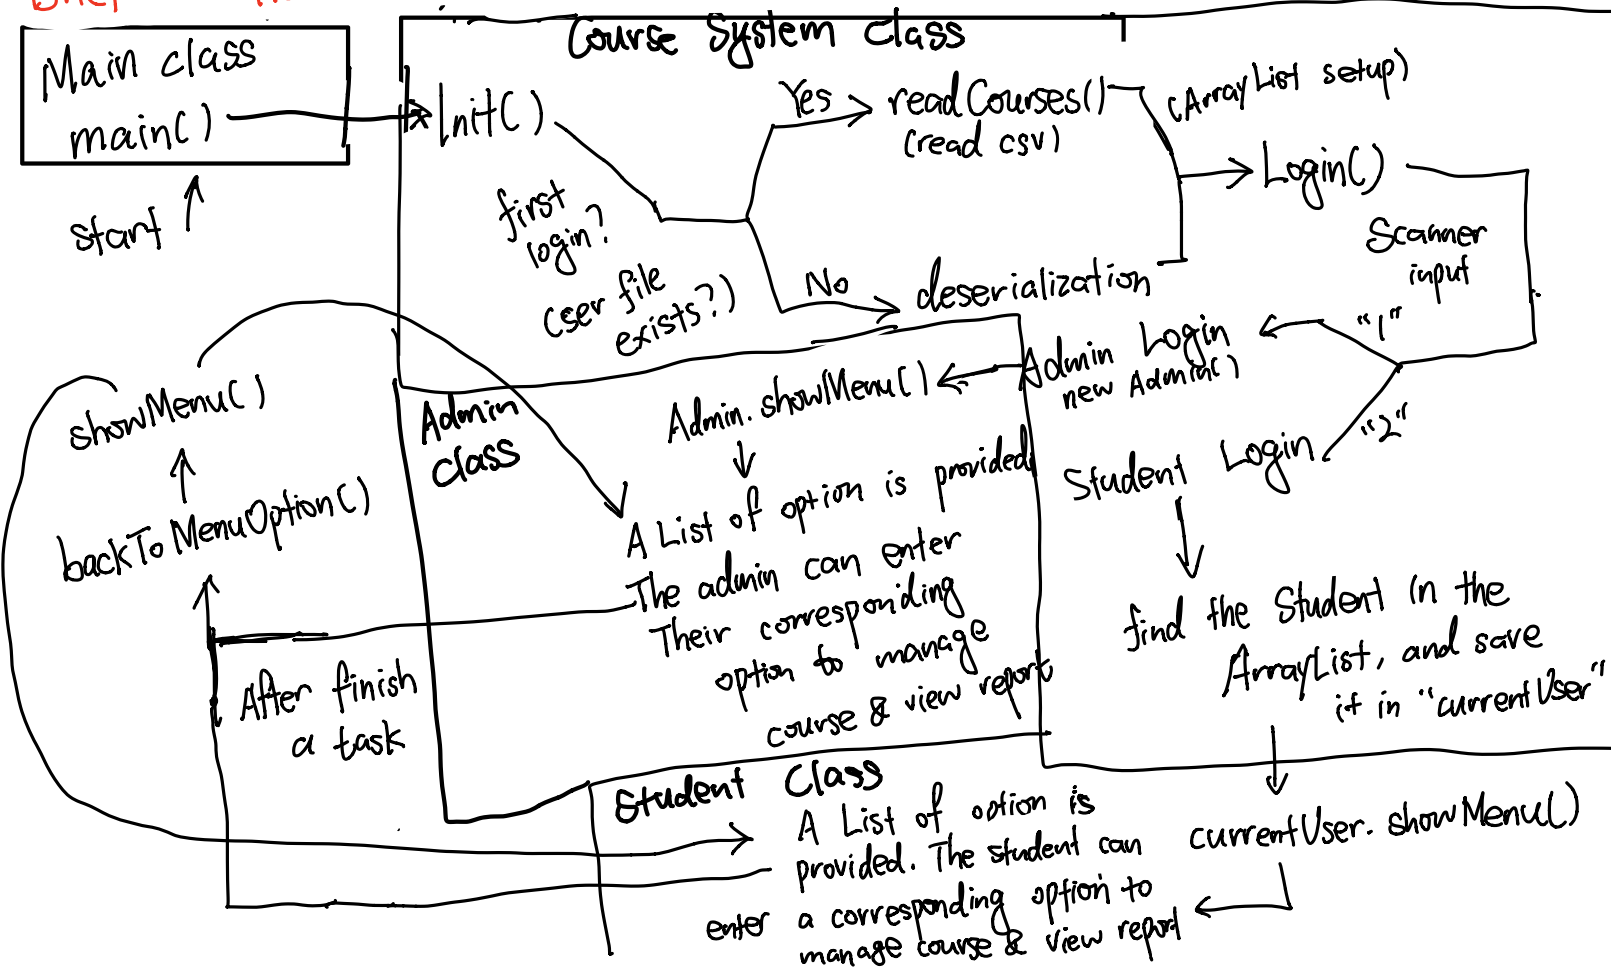 Main class
main()
start
Course System Class
Init()
first
login?
(ser file
exists?)
Yes
readCourses()
(read csv)
No
deserialization
(ArrayList setup)
Login()
Scanner
input
"1"
"2"
Admin Login
new Admin()
Student Login
find the Student in the
ArrayList, and save
it in "currentUser"
currentUser. showMenu()
Admin
class
Admin. showMenu()
A List of option is provided.
The admin can enter
Their corresponding
option to manage
course & view report
showMenu()
backToMenuOption()
After finish
a task
Student Class
A List of option is
provided. The student can
enter a corresponding option to
manage course & view report